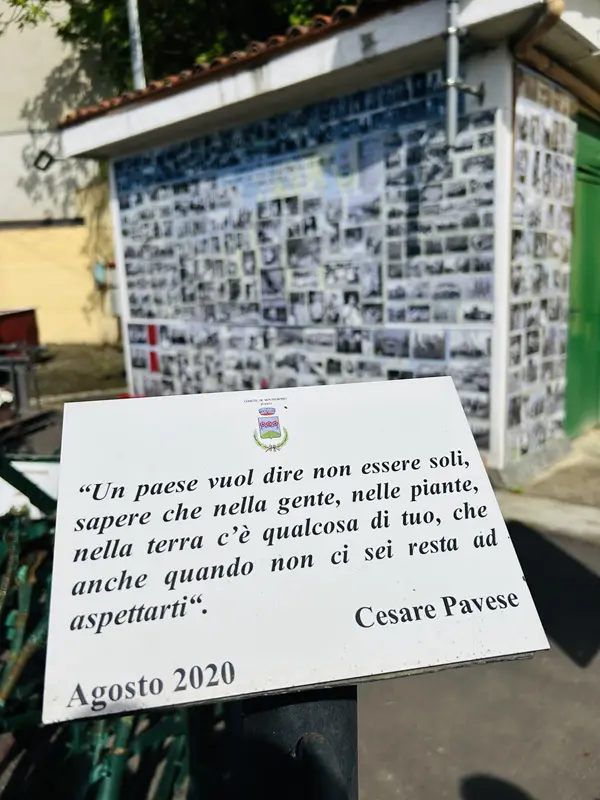 “Un paese vuol dire non essere soli,
sapere che nella gente, nelle piante,
nella terra c’è qualcosa di tuo, che
anche quando non ci sei resta ad
aspettarti“.
Cesare Pavese
Agosto 2020